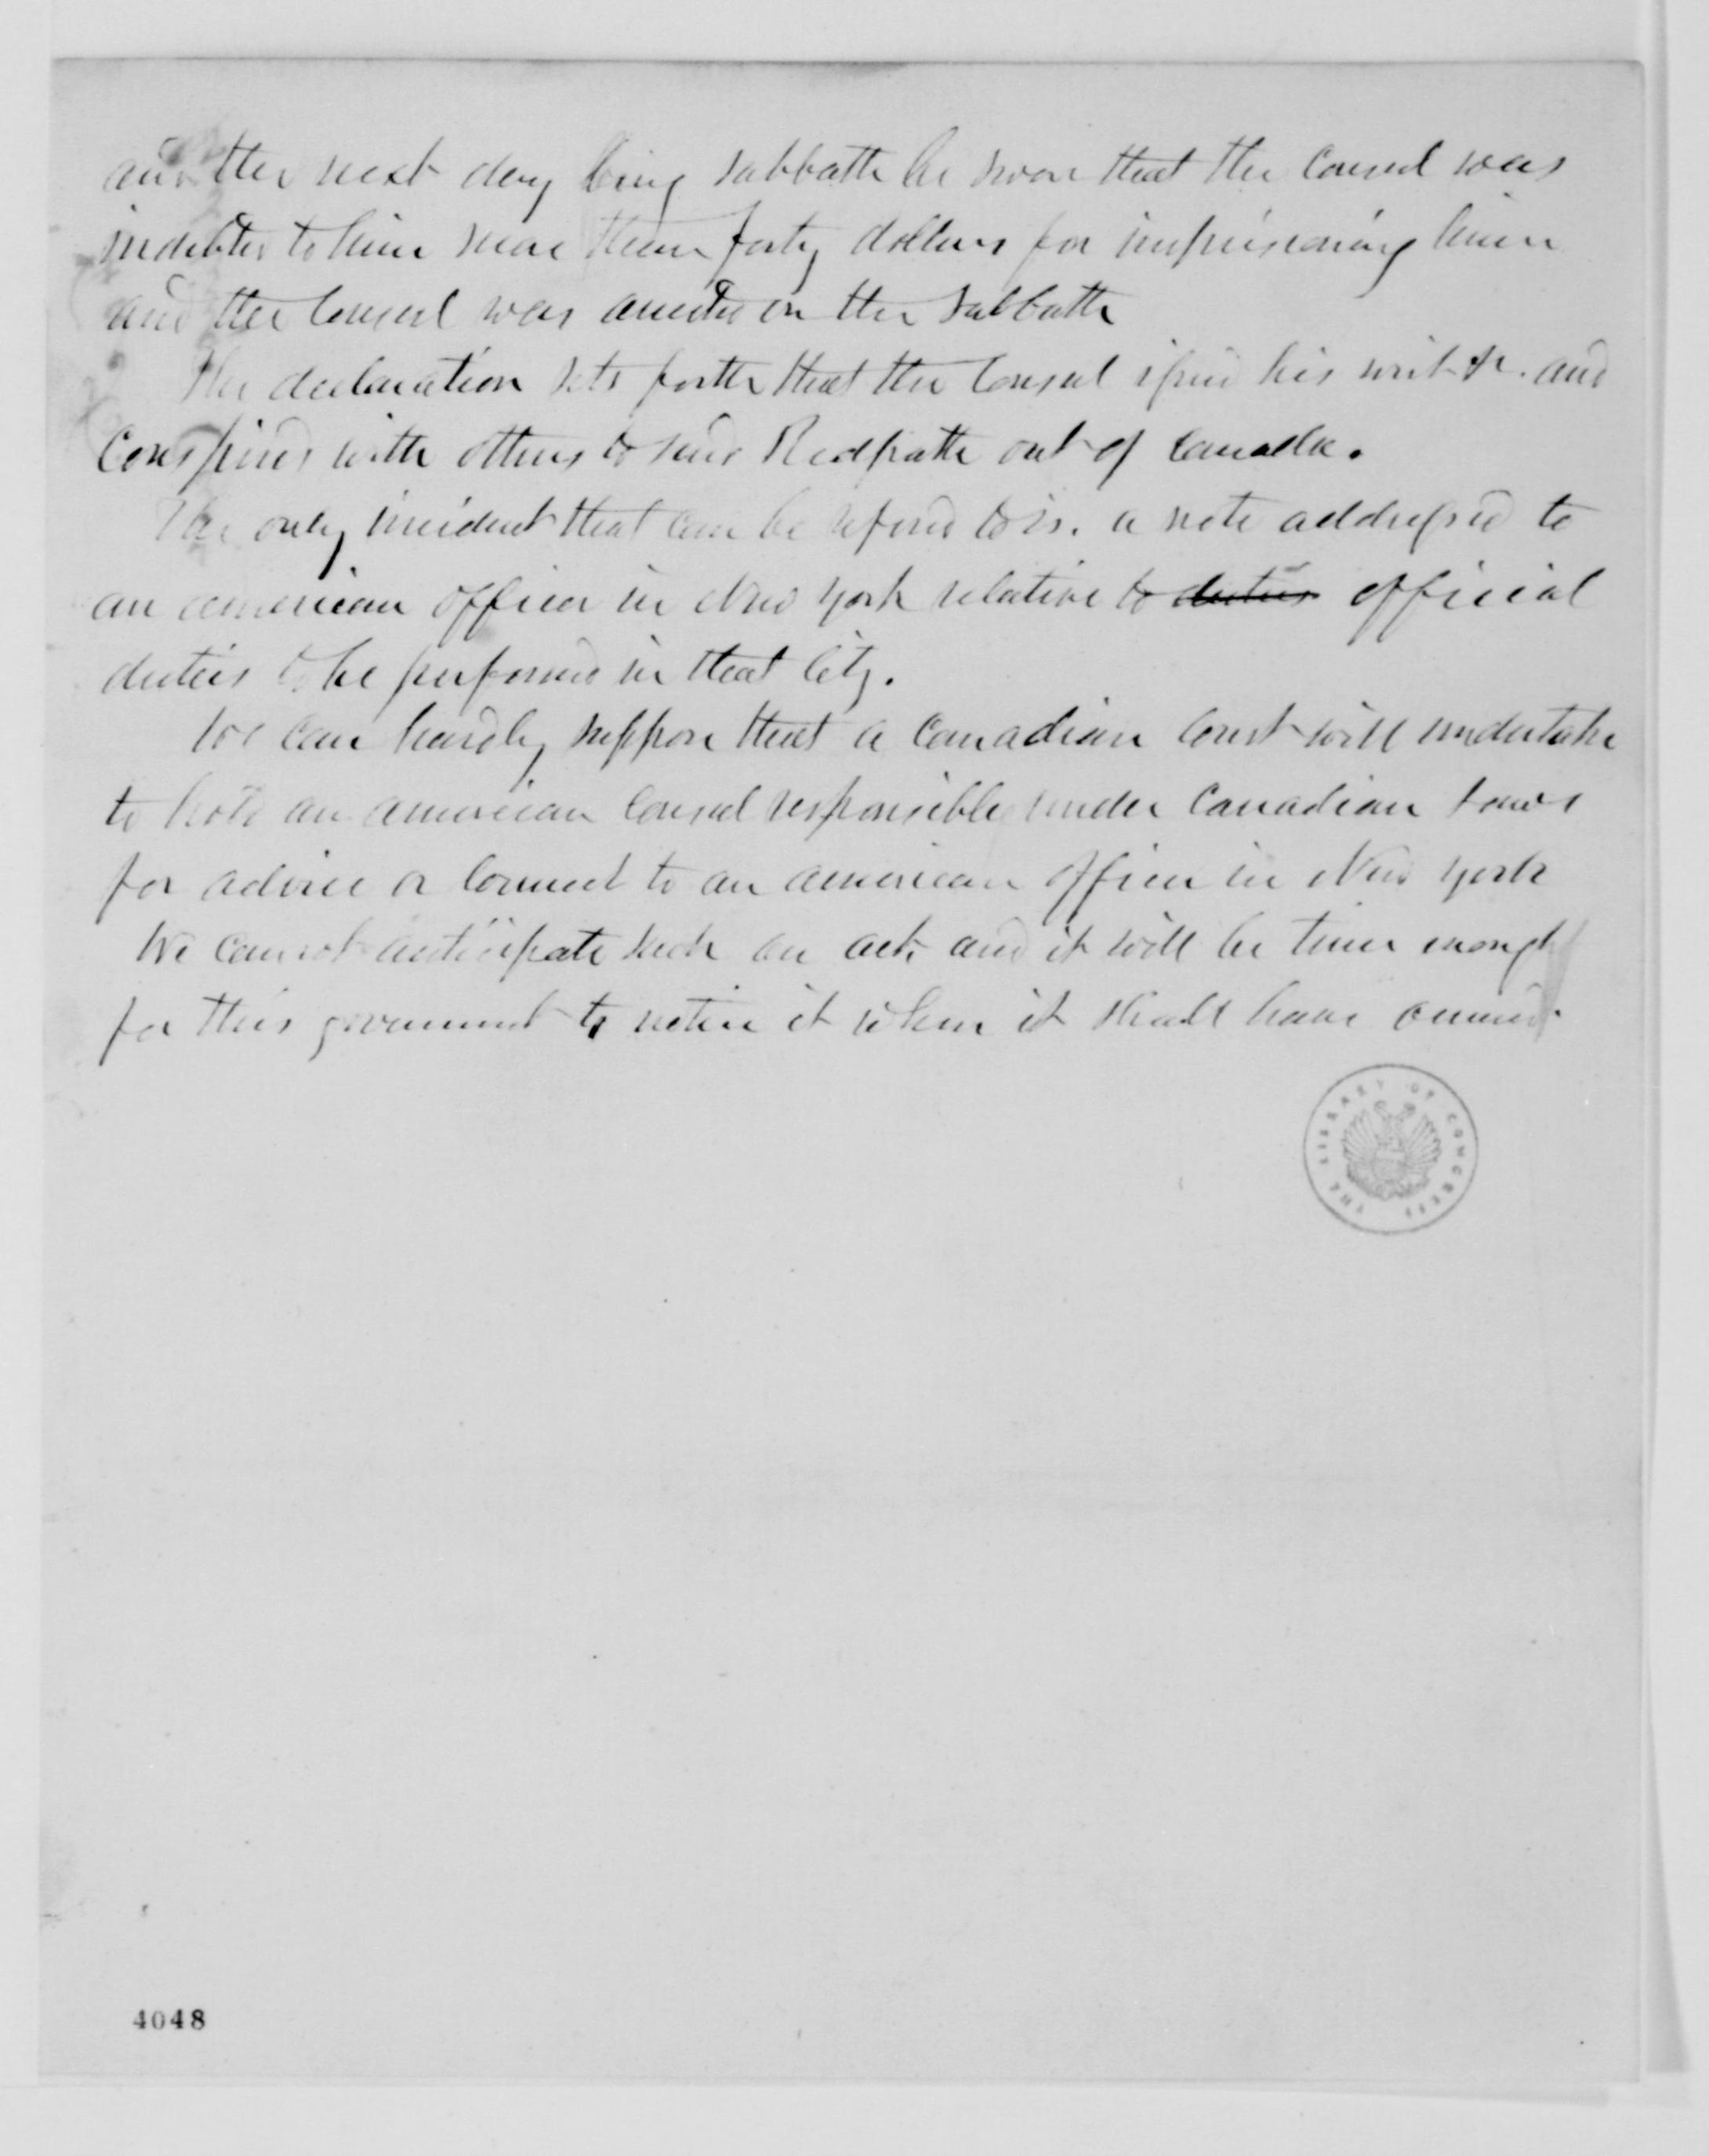 and the next day being Sabbath he swore that the Consul was
indebted to him more than forty dollars for imprisoning him
and the Consul was arrested on the Sabbath
The declaration sets forth that the Consul issued his writ &c. and
Conspired with others to send Redpath out of Canada.
The only incident that can be refered to is. a note addressed to
an american officer in New York relative to duties official
duties to be performed in that City.
We can hardly suppose that a Canadian Court will undertake
to hold an american Consul responsible under Canadian Laws
for advice or Counsel to an american officer in New York
We cannot anticipate such an act, and it will be time enough
for this government to notice it when it shall have occurred.
THE LIBRARY OF CONGRESS
4048